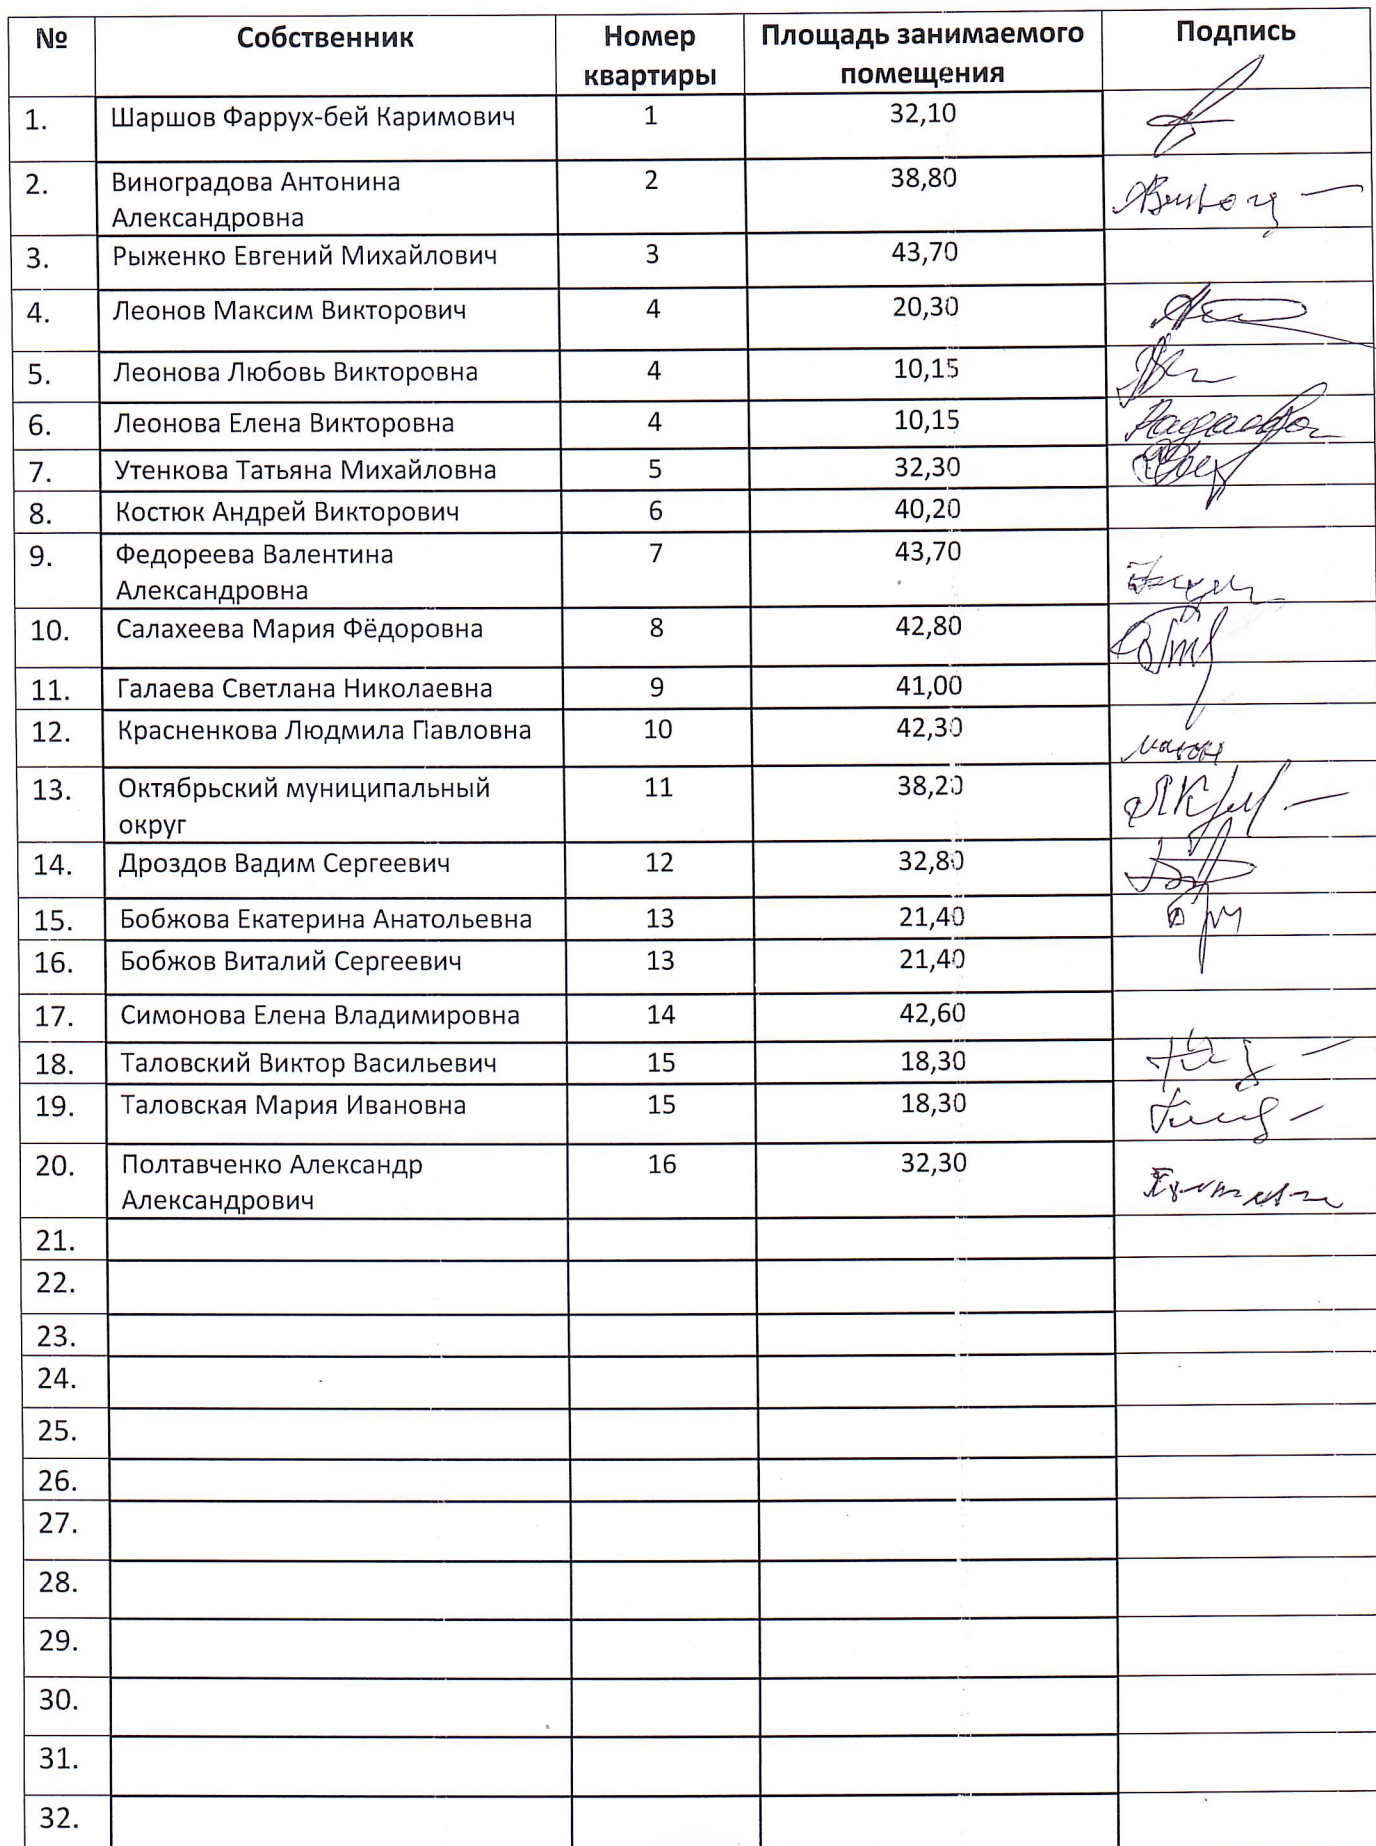 № Собственник Номер квартиры Площадь занимаемого помещения Подпись
1. Шаршов Фаррух-бей Каримович 1 32,10
2. Виноградова Антонина 2 38,80
Александровна
3. Рыженко Евгений Михайлович 3 43,70
4. Леонов Максим Викторович 4 20,30
5. Леонова Любовь Викторовна 4 10,15
6. Леонова Елена Викторовна 4 10,15
7. Утенкова Татьяна Михайловна 5 32,30
8. Костюк Андрей Викторович 6 40,20
9. Федореева Валентина 7 43,70
Александровна
10. Салахеева Мария Фёдоровна 8 42,80
11. Галаева Светлана Николаевна 9 41,00
12. Красненкова Людмила Павловна 10 42,30
13. Октябрьский муниципальный 11 38,20
округ
14. Дроздов Вадим Сергеевич 12 32,80
15. Бобжова Екатерина Анатольевна 13 21,40
16. Бобжов Виталий Сергеевич 13 21,40
17. Симонова Елена Владимировна 14 42,60
18. Таловский Виктор Васильевич 15 18,30
19. Таловская Мария Ивановна 15 18,30
20. Полтавченко Александр 16 32,30
Александрович
21.
22.
23.
24.
25.
26.
27.
28.
29.
30.
31.
32.